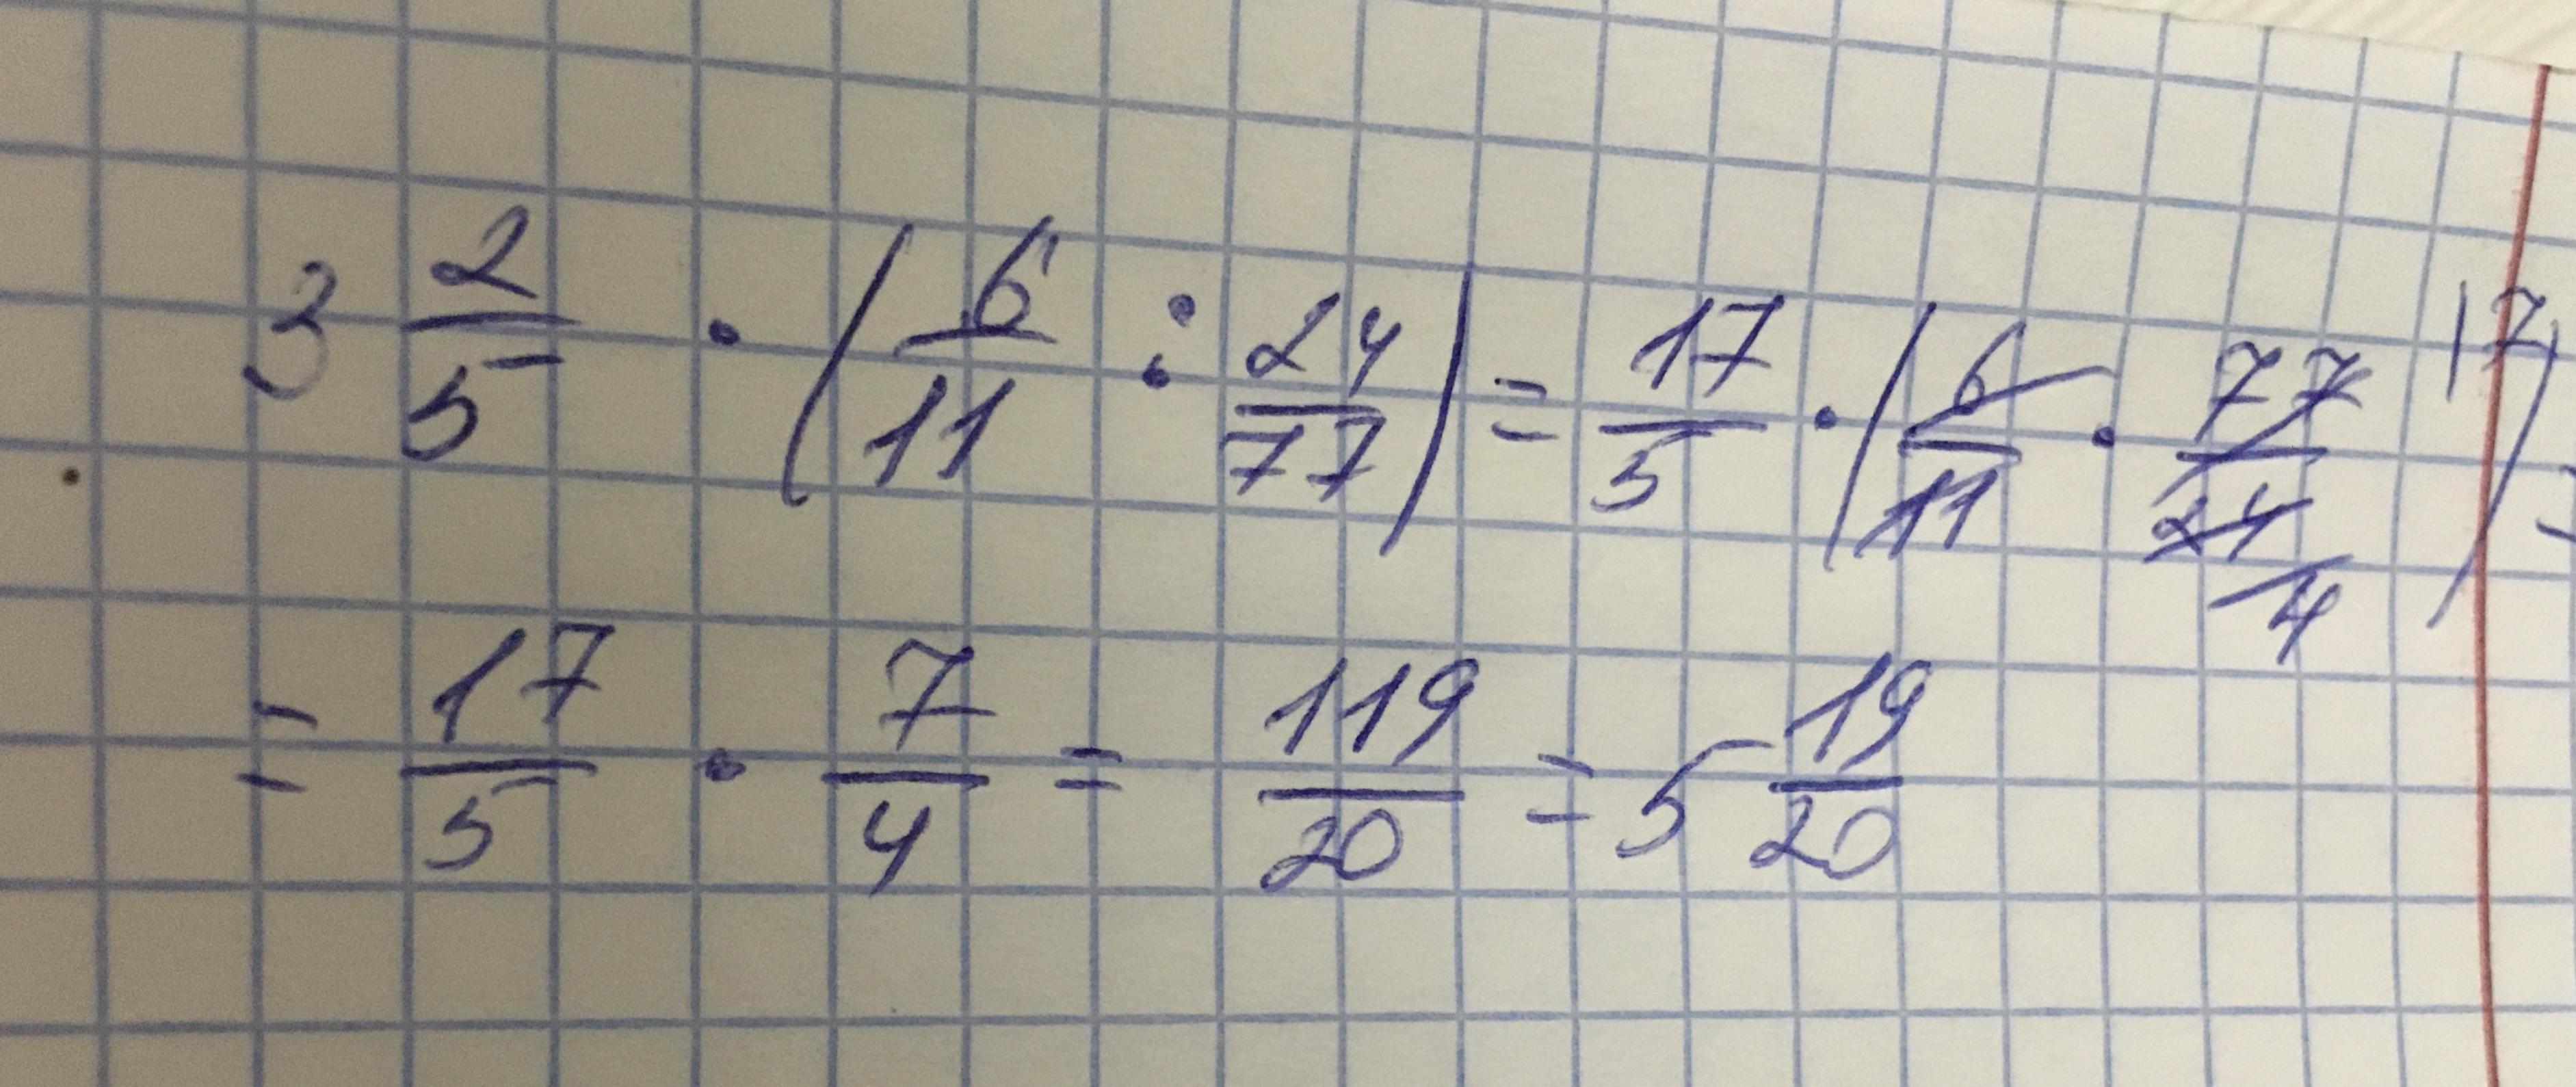 3 2/5 · (6/11 : 24/77) = 17/5 · (6/11 · 77/24 |7 /4) =
= 17/5 · 7/4 = 119/20 = 5 19/20